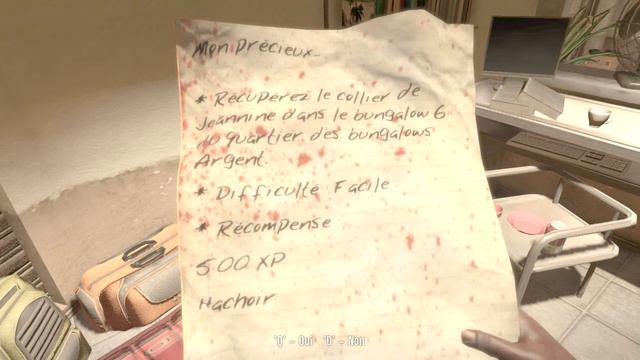 Mon Précieux
* Récupérez le collier de
Jeannine dans le bungalow 6
du quartier des bungalows
Argent.
* Difficulté Facile
* Récompense
500 XP
Hachoir
"Q" - Oui "D" - Non